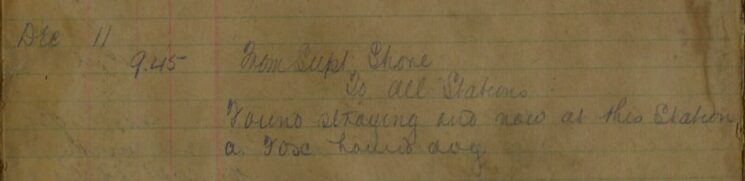 Dec 11
9.45 From Supt. Shore
To all Stations
Found straying and now at this Station
a Fox hound dog